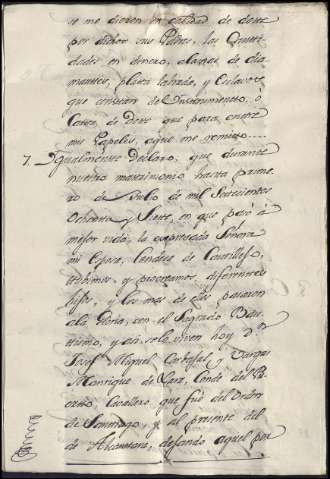 se me dieron en calidad de dote
por dichos sus Padres, las Canti
dades en dinero, alajas de dia
mantes, plata labrada, y Esclavos
que constan del Instrumento, ò
Carta de Dote que para entre
mis Papeles, aque me remito....
7. Igualmente Declaro, que durante
nuestro matrimonio hasta prime
ro de Julio de mil Setecientos
Ochenta y Siete, en que pasó á
mejor vida, la expresada Señora
mi Esposa, Condesa de Castillejo,
tubimos, y procreamos, diferentes
hijos, y los mas de ellos pasaron
ala Gloria, con el Sagrado Bau
tismo, y asi solo viven hoy Dn
Josef Miguel Carbajal y Vargas
Manrique de Lara, Conde del Pu
erto, Cavallero que fué del Orden
de Santiago, y al presente del
de Alcantara, dejando aquel por